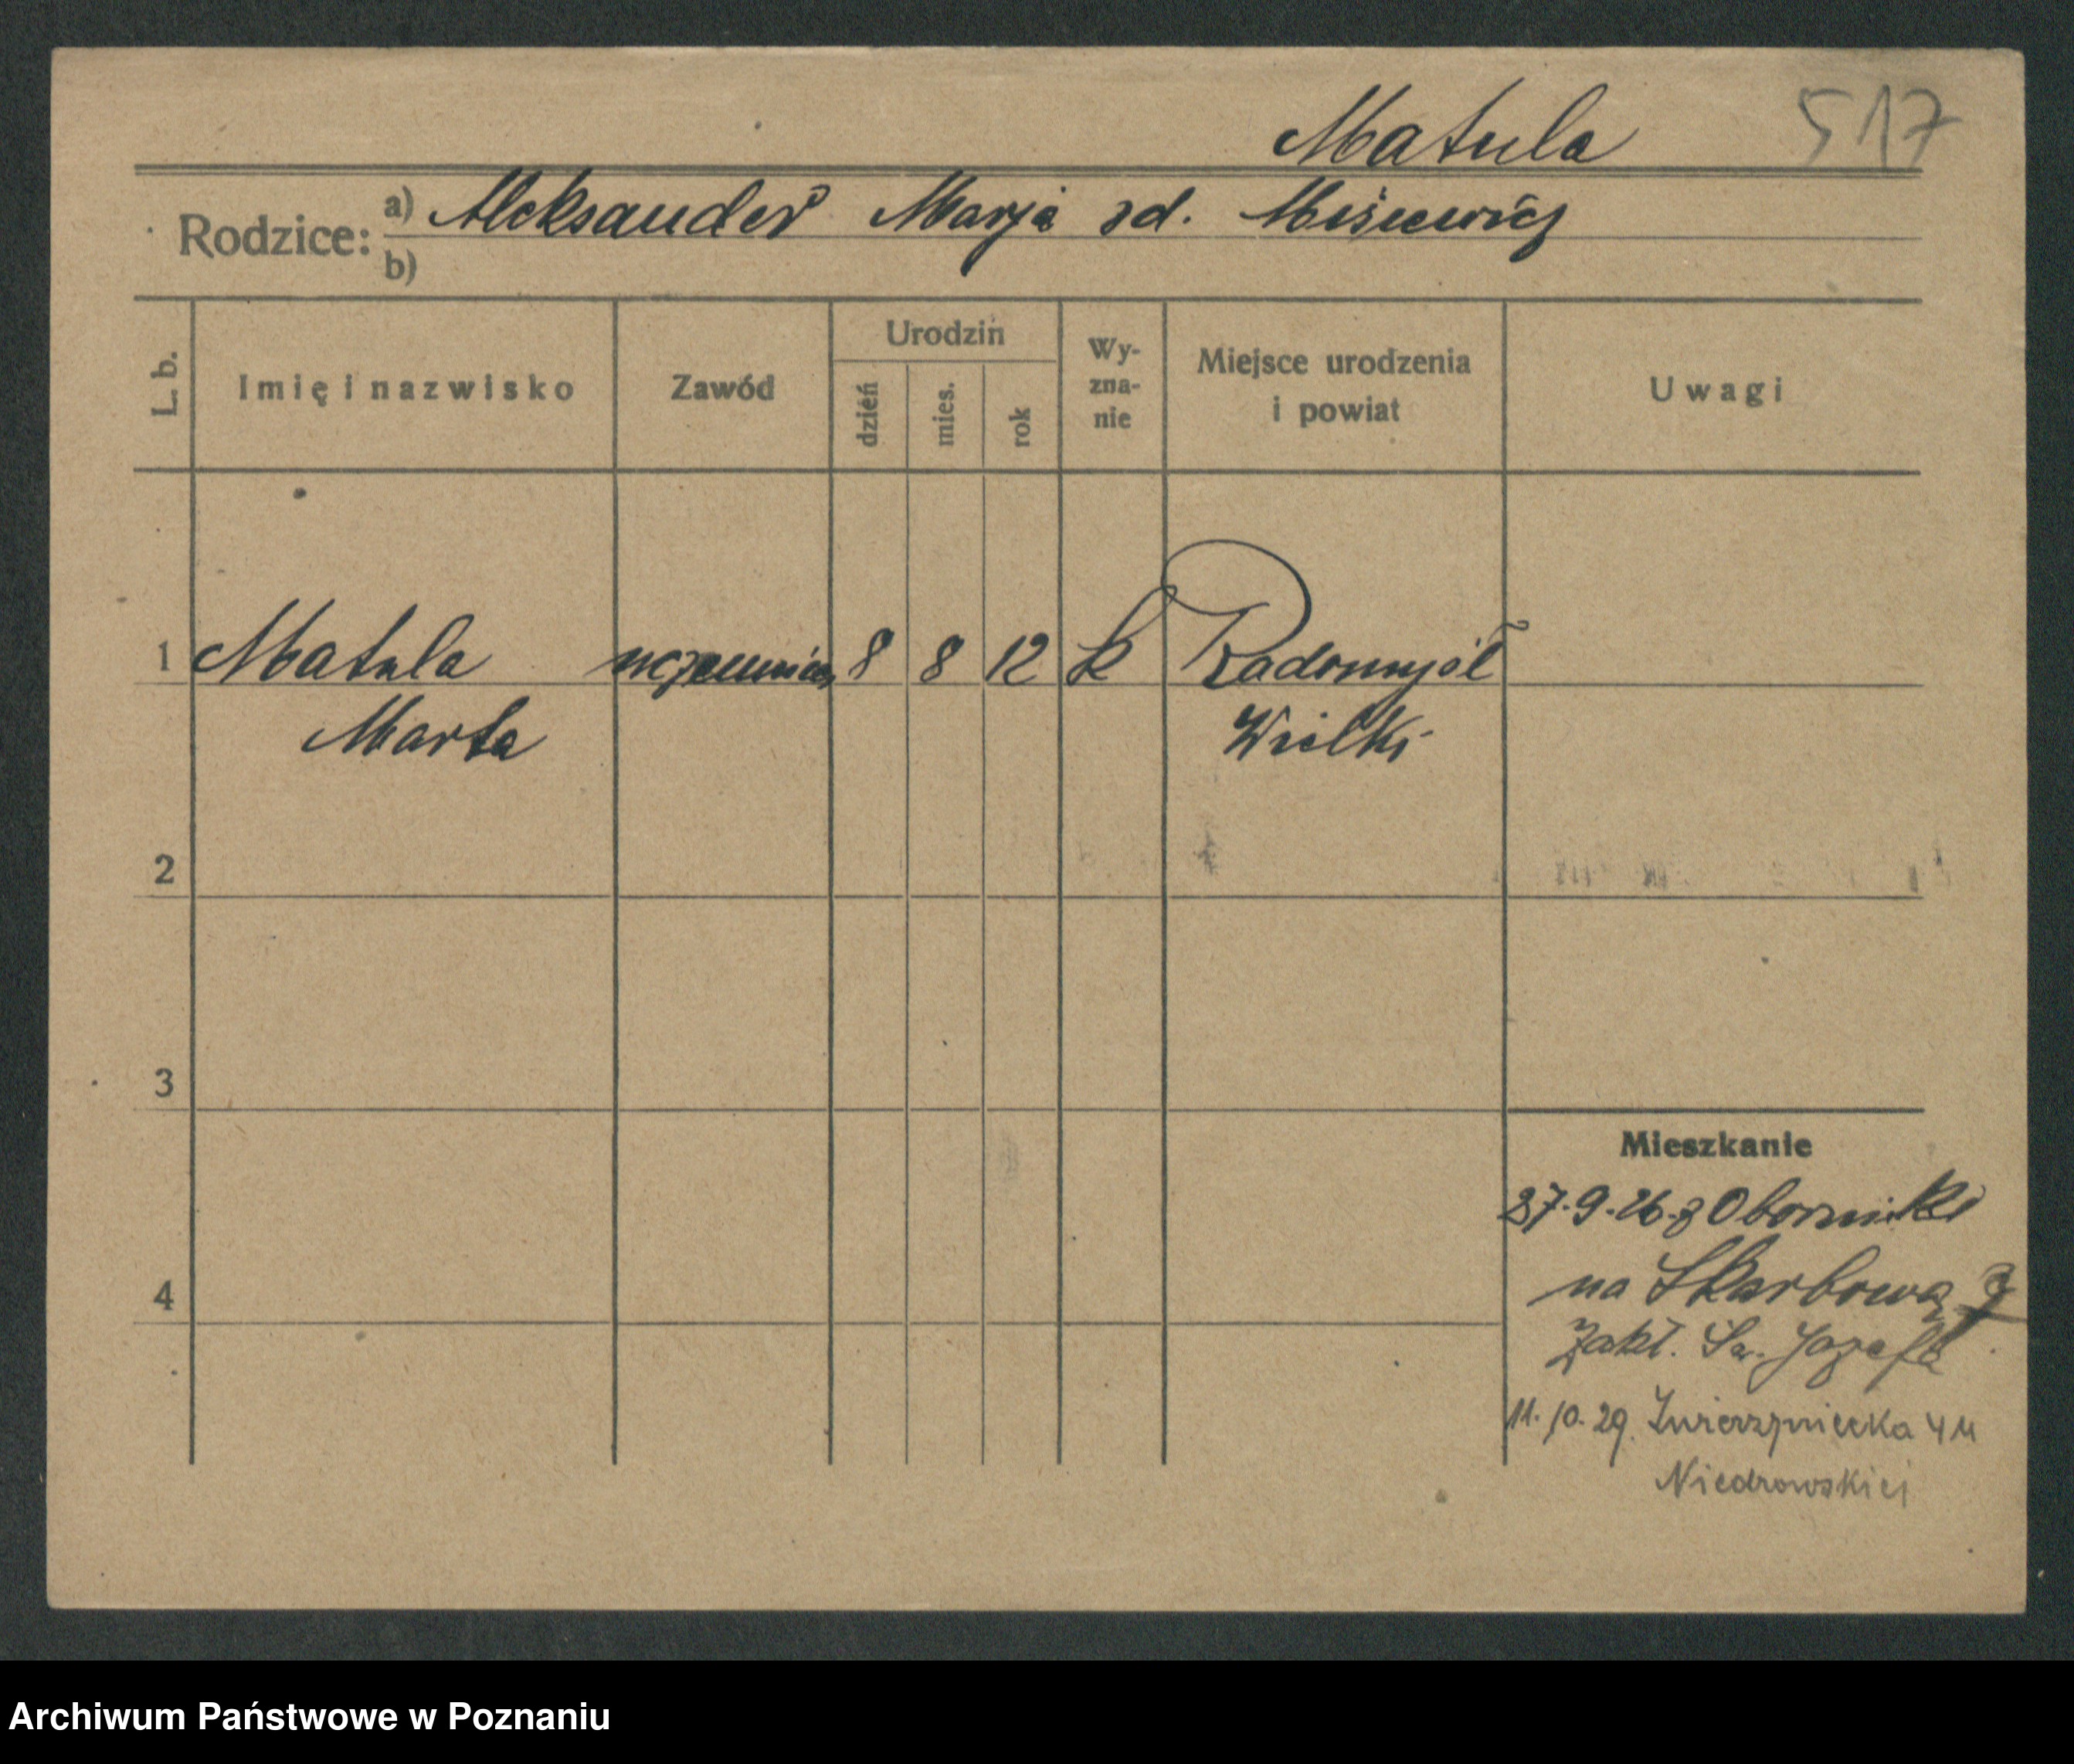 Matula 517
Rodzice: a) Aleksander Marja zd. Misiewicz
b)
L. b. Imię i nazwisko Zawód Urodzin dzień mies. rok Wy-zna-nie Miejsce urodzenia i powiat Uwagi
1 Matula uczennica 8 8 12 k Radomyśl
Marta Wielki
2
3
Mieszkanie
27.9.26. z Oborniki
na Skarbową
4
Zakł. Św. Józefa
11.10.29. Zwierzyniecka 4 u
Niedrowskiej
Archiwum Państwowe w Poznaniu